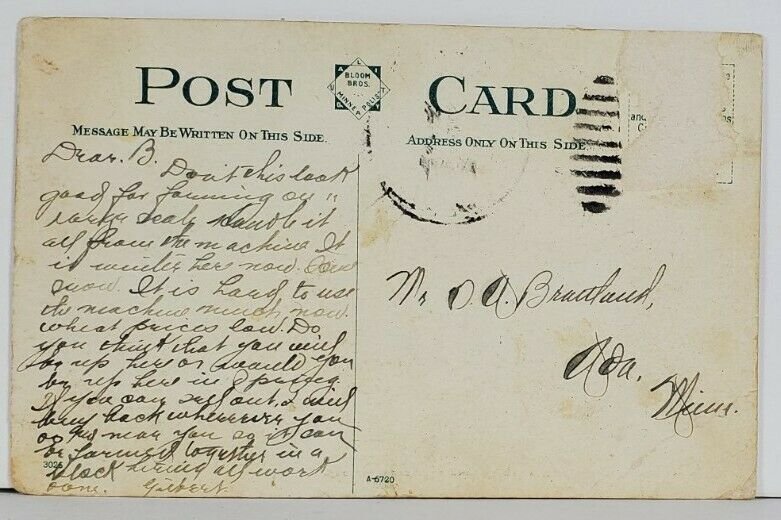 POST CARD
BLOOM
BROS.
MINNEAPOLIS
MESSAGE MAY BE WRITTEN ON THIS SIDE.
ADDRESS ONLY ON THIS SIDE
Dear. B.
Don't this look
good for farming on
large scale handle it
all from the machine It
is winter here now.
snow. It is hard to use
the machine much now.
wheat prices low. Do
you think that you will
be up here or would you
be up here in
If you can sell out. I will
buy back wherever you
or near you so it can
be farmed together in a
block hiring all work
done. Gilbert.
Mr O A. Bratland,
Ada,
Minn.
3025
A-6720